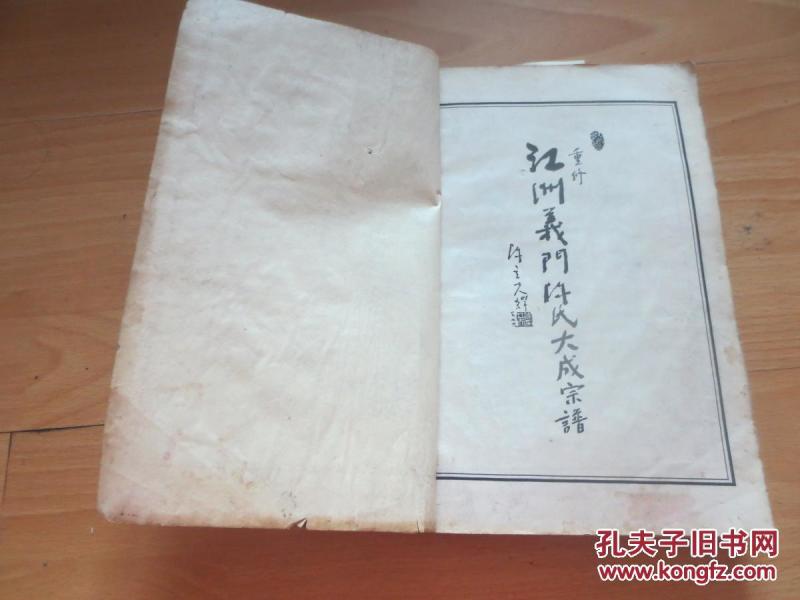 重修
江洲義門陈氏大成宗譜
陈立夫题
孔夫子旧书网
www.kongfz.com